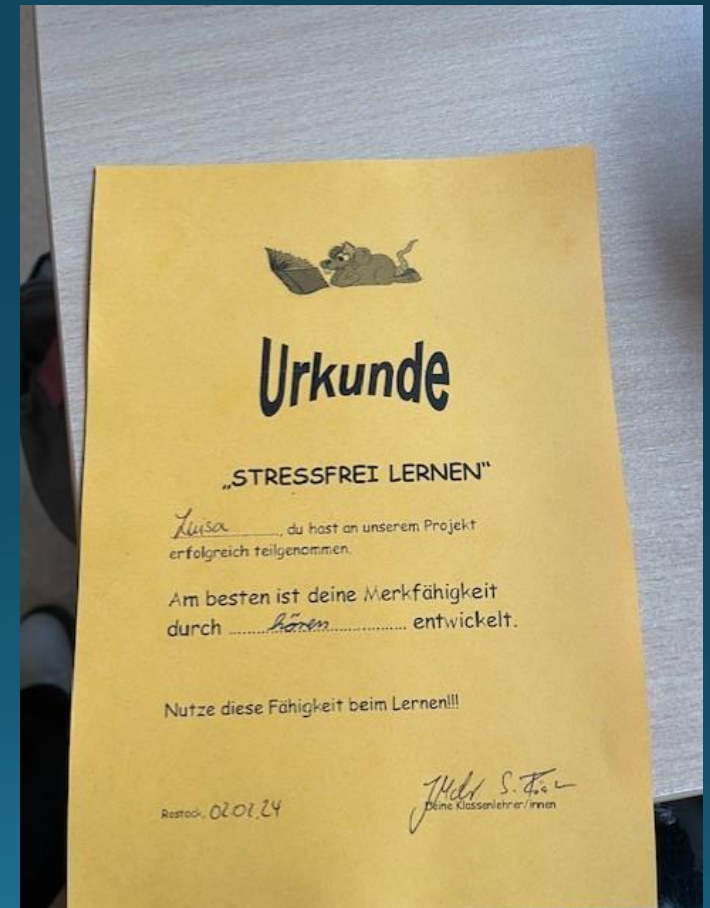 Urkunde
„STRESSFREI LERNEN“
Luisa, du hast an unserem Projekt
erfolgreich teilgenommen.
Am besten ist deine Merkfähigkeit
durch ......hören...... entwickelt.
Nutze diese Fähigkeit beim Lernen!!!
S.
Rostock, 02.02.24
Deine Klassenlehrer/innen